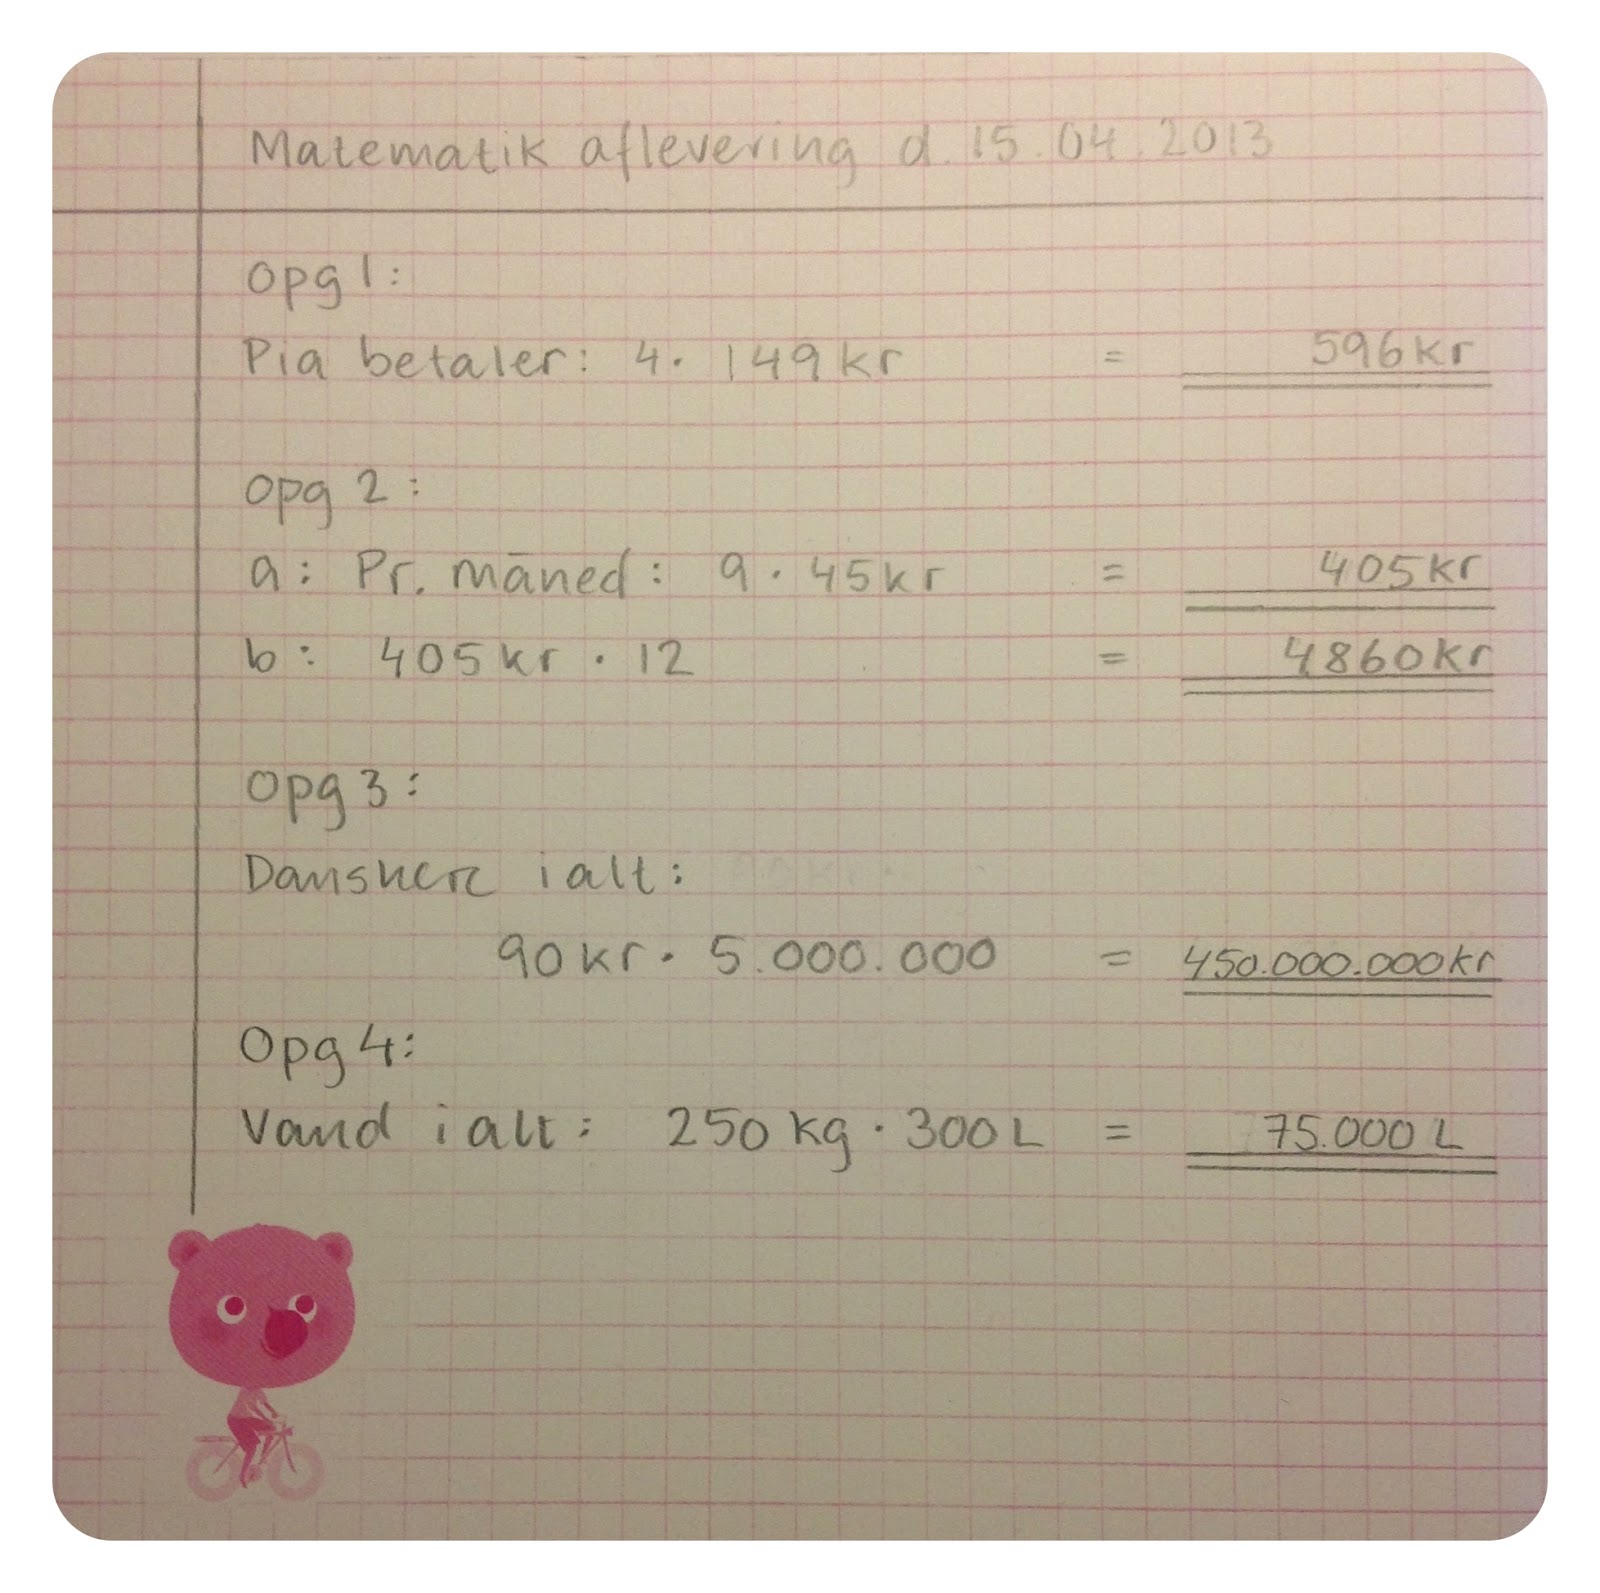 Matematik aflevering d. 15.04.2013
Opg 1:
Pia betaler: 4 · 149 kr = 596 kr
Opg 2:
a: Pr. måned: 9 · 45 kr = 405 kr
b: 405 kr · 12 = 4860 kr
Opg 3:
Danskere i alt:
90 kr · 5.000.000 = 450.000.000 kr
Opg 4:
Vand i alt: 250 kg · 300 L = 75.000 L